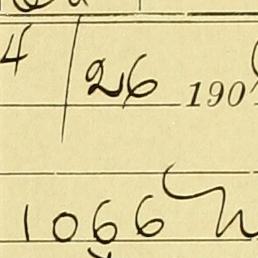 4 26 190
1066 N